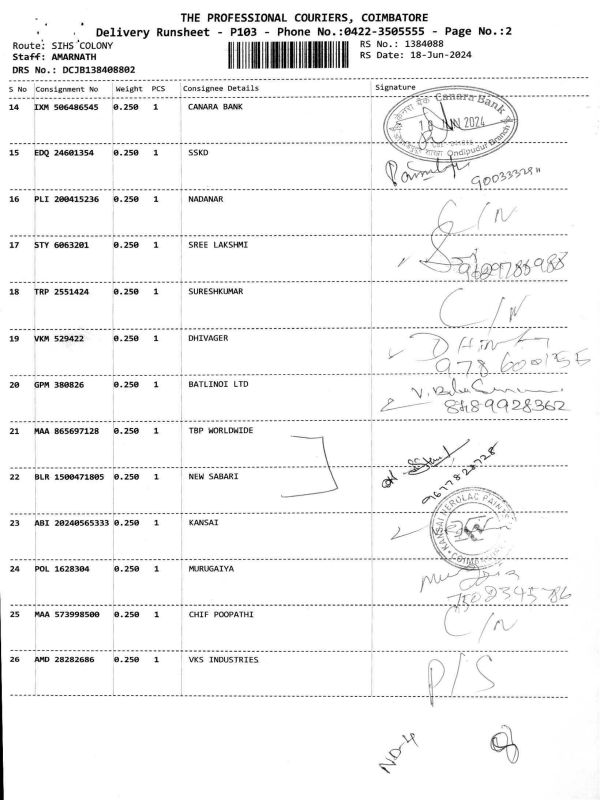 THE PROFESSIONAL COURIERS, COIMBATORE
Delivery Runsheet - P103 - Phone No.:0422-3505555 - Page No.:2
Route: SIHS COLONY RS No.: 1384088
Staff: AMARNATH RS Date: 18-Jun-2024
DRS No.: DCJB138408802
S No Consignment No Weight PCS Consignee Details Signature
14 IXM 506486545 0.250 1 CANARA BANK
Canara Bank
JUN 2024
Ondipudur Branch
15 EDQ 24601354 0.250 1 SSKD
16 PLI 200415236 0.250 1 NADANAR C/N
17 STY 6063201 0.250 1 SREE LAKSHMI
9629788988
18 TRP 2551424 0.250 1 SURESHKUMAR C/N
19 VKM 529422 0.250 1 DHIVAGER
20 GPM 380826 0.250 1 BATLINOI LTD
8189928362
21 MAA 865697128 0.250 1 TBP WORLDWIDE
9677828728
22 BLR 1500471805 0.250 1 NEW SABARI
23 ABI 20240565333 0.250 1 KANSAI
KANSAI NEROLAC PAINTS
24 POL 1628304 0.250 1 MURUGAIYA
7502345786
25 MAA 573998500 0.250 1 CHIF POOPATHI C/N
26 AMD 28282686 0.250 1 VKS INDUSTRIES P/S
ND-4